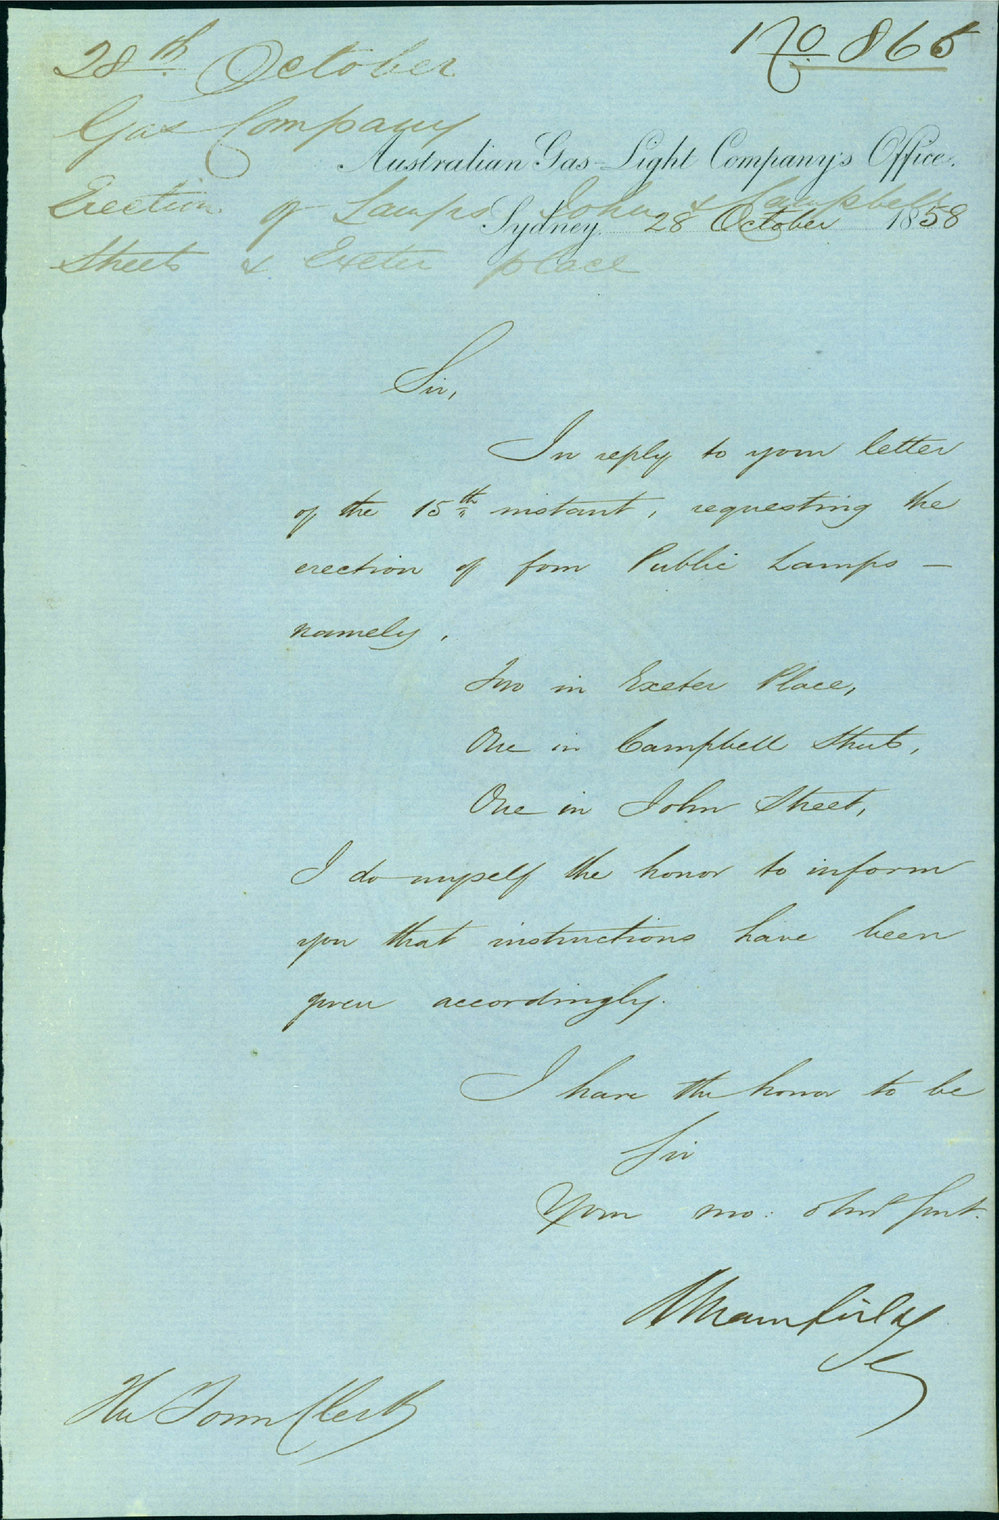 28th October
No 865
Gas Company
Australian Gas Light Company's Office.
Erection of Lamps John & Campbell
Sydney 28 October 1858
Streets & Exeter place
Sir,
In reply to your letter
of the 15th instant, requesting the
erection of four Public Lamps —
namely,
Two in Exeter Place,
One in Campbell Street,
One in John Street,
I do myself the honor to inform
you that instructions have been
given accordingly.
I have the honor to be
Sir
Your mo: obdt Servt.
The Town Clerk